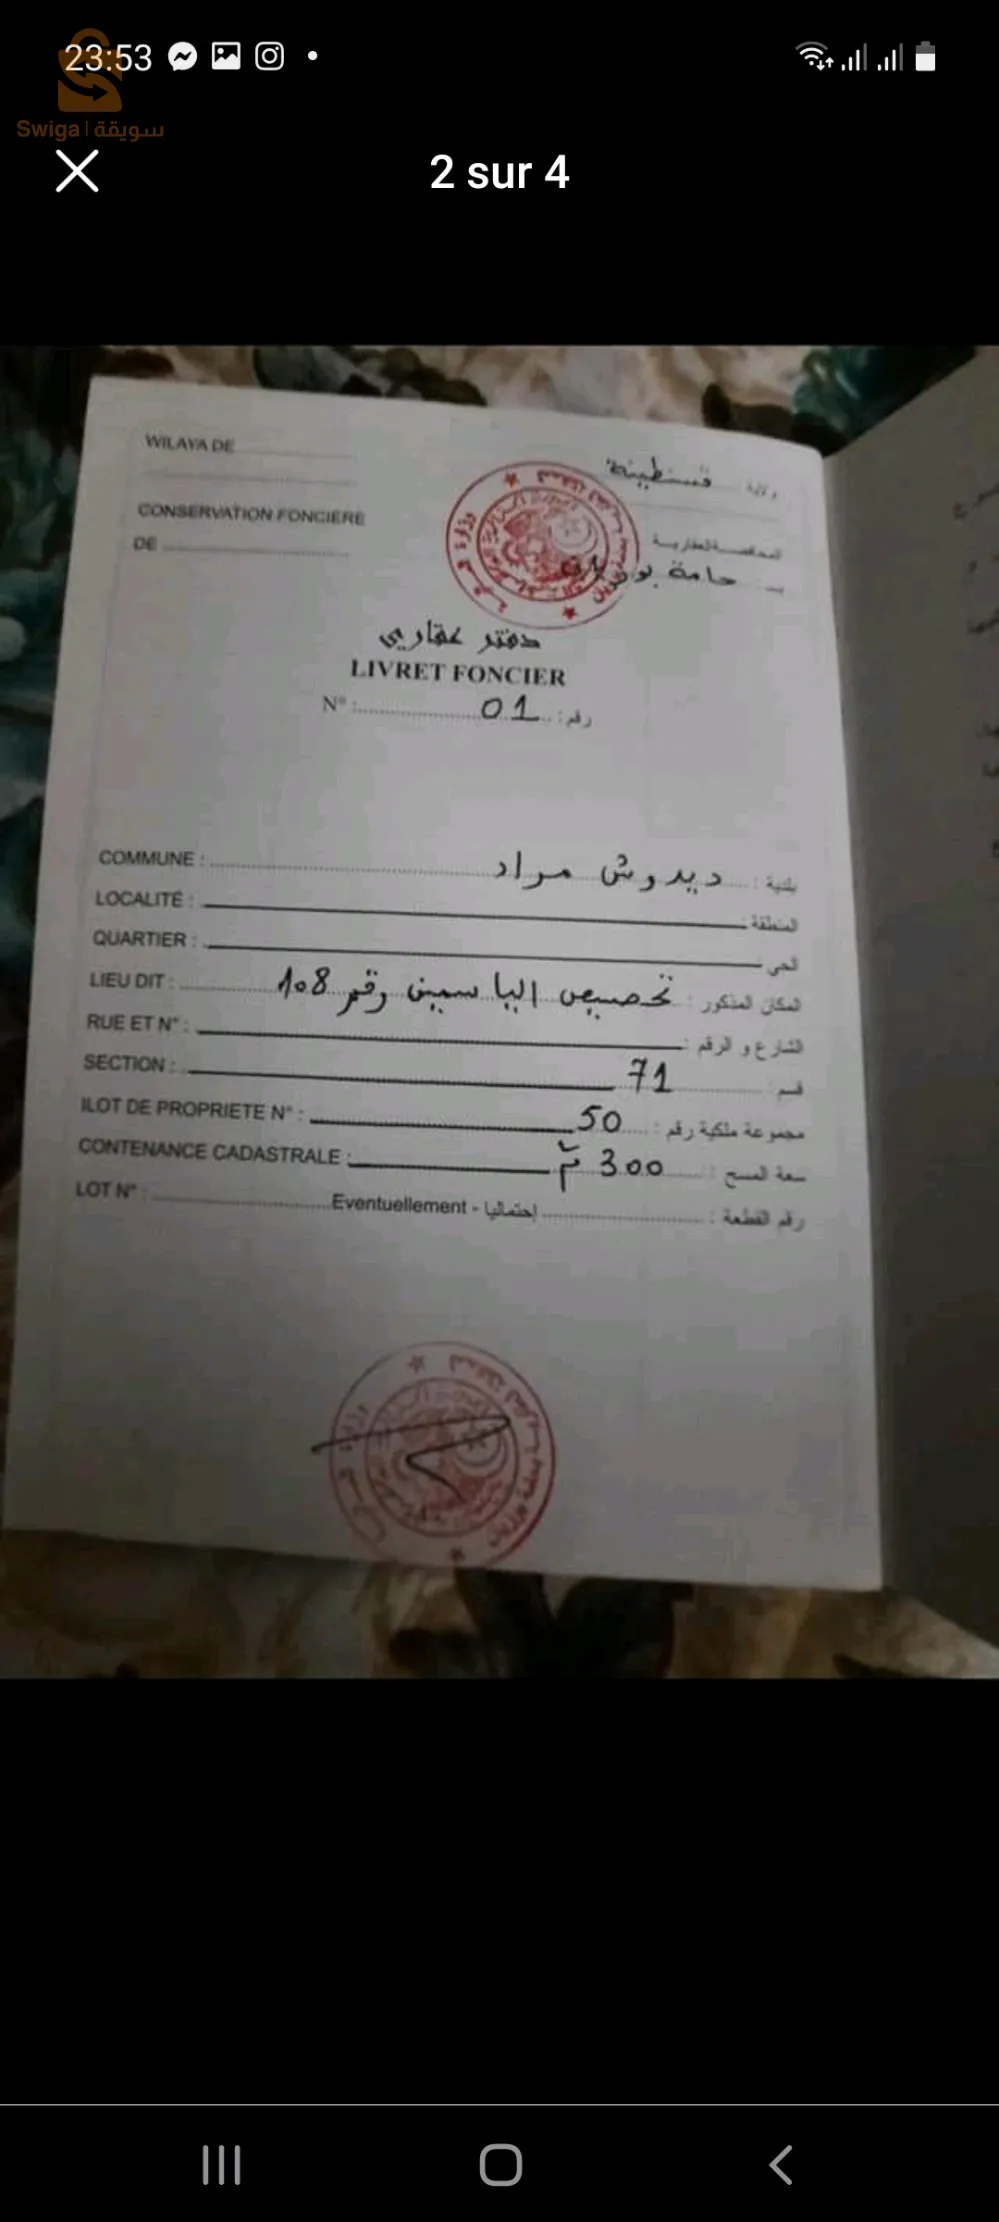 23:53
Swiga | سويقة
2 sur 4
WILAYA DE
ولاية قسنطينة
CONSERVATION FONCIERE
المحافظة العقارية
DE
حامة بوزيان
دفتر عقاري
LIVRET FONCIER
N° : 01 رقم :
COMMUNE : ديدوش مراد بلدية :
LOCALITÉ : المنطقة :
QUARTIER : الحي
LIEU DIT : تخصيص الياسمين رقم 108 المكان المذكور :
RUE ET N° : الشارع و الرقم :
SECTION : 71 قسم
ILOT DE PROPRIETE N° : 50 مجموعة ملكية رقم :
CONTENANCE CADASTRALE : 300 م² سعة المسح :
LOT N° : Eventuellement - إحتماليا رقم القطعة :